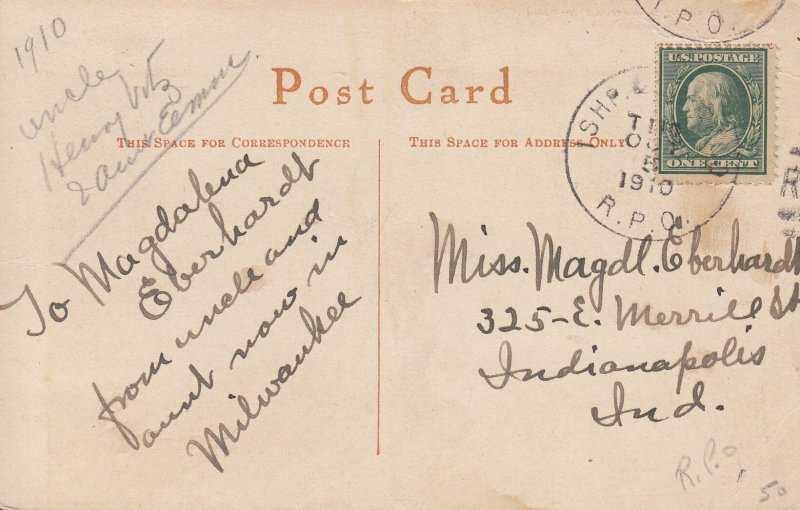 1910
uncle
Henry Vitz
& aunt Emma
Post Card
THIS SPACE FOR CORRESPONDENCE
THIS SPACE FOR ADDRESS ONLY
To Magdalena
Eberhardt
from uncle and
aunt now in
Milwaukee
U.S. POSTAGE
ONE CENT
ISHP. &
1910
R.P.O.
R.P.O.
Miss. Magdl. Eberhardt
325-E. Merrill St
Indianapolis
Ind.
R.P.O
50